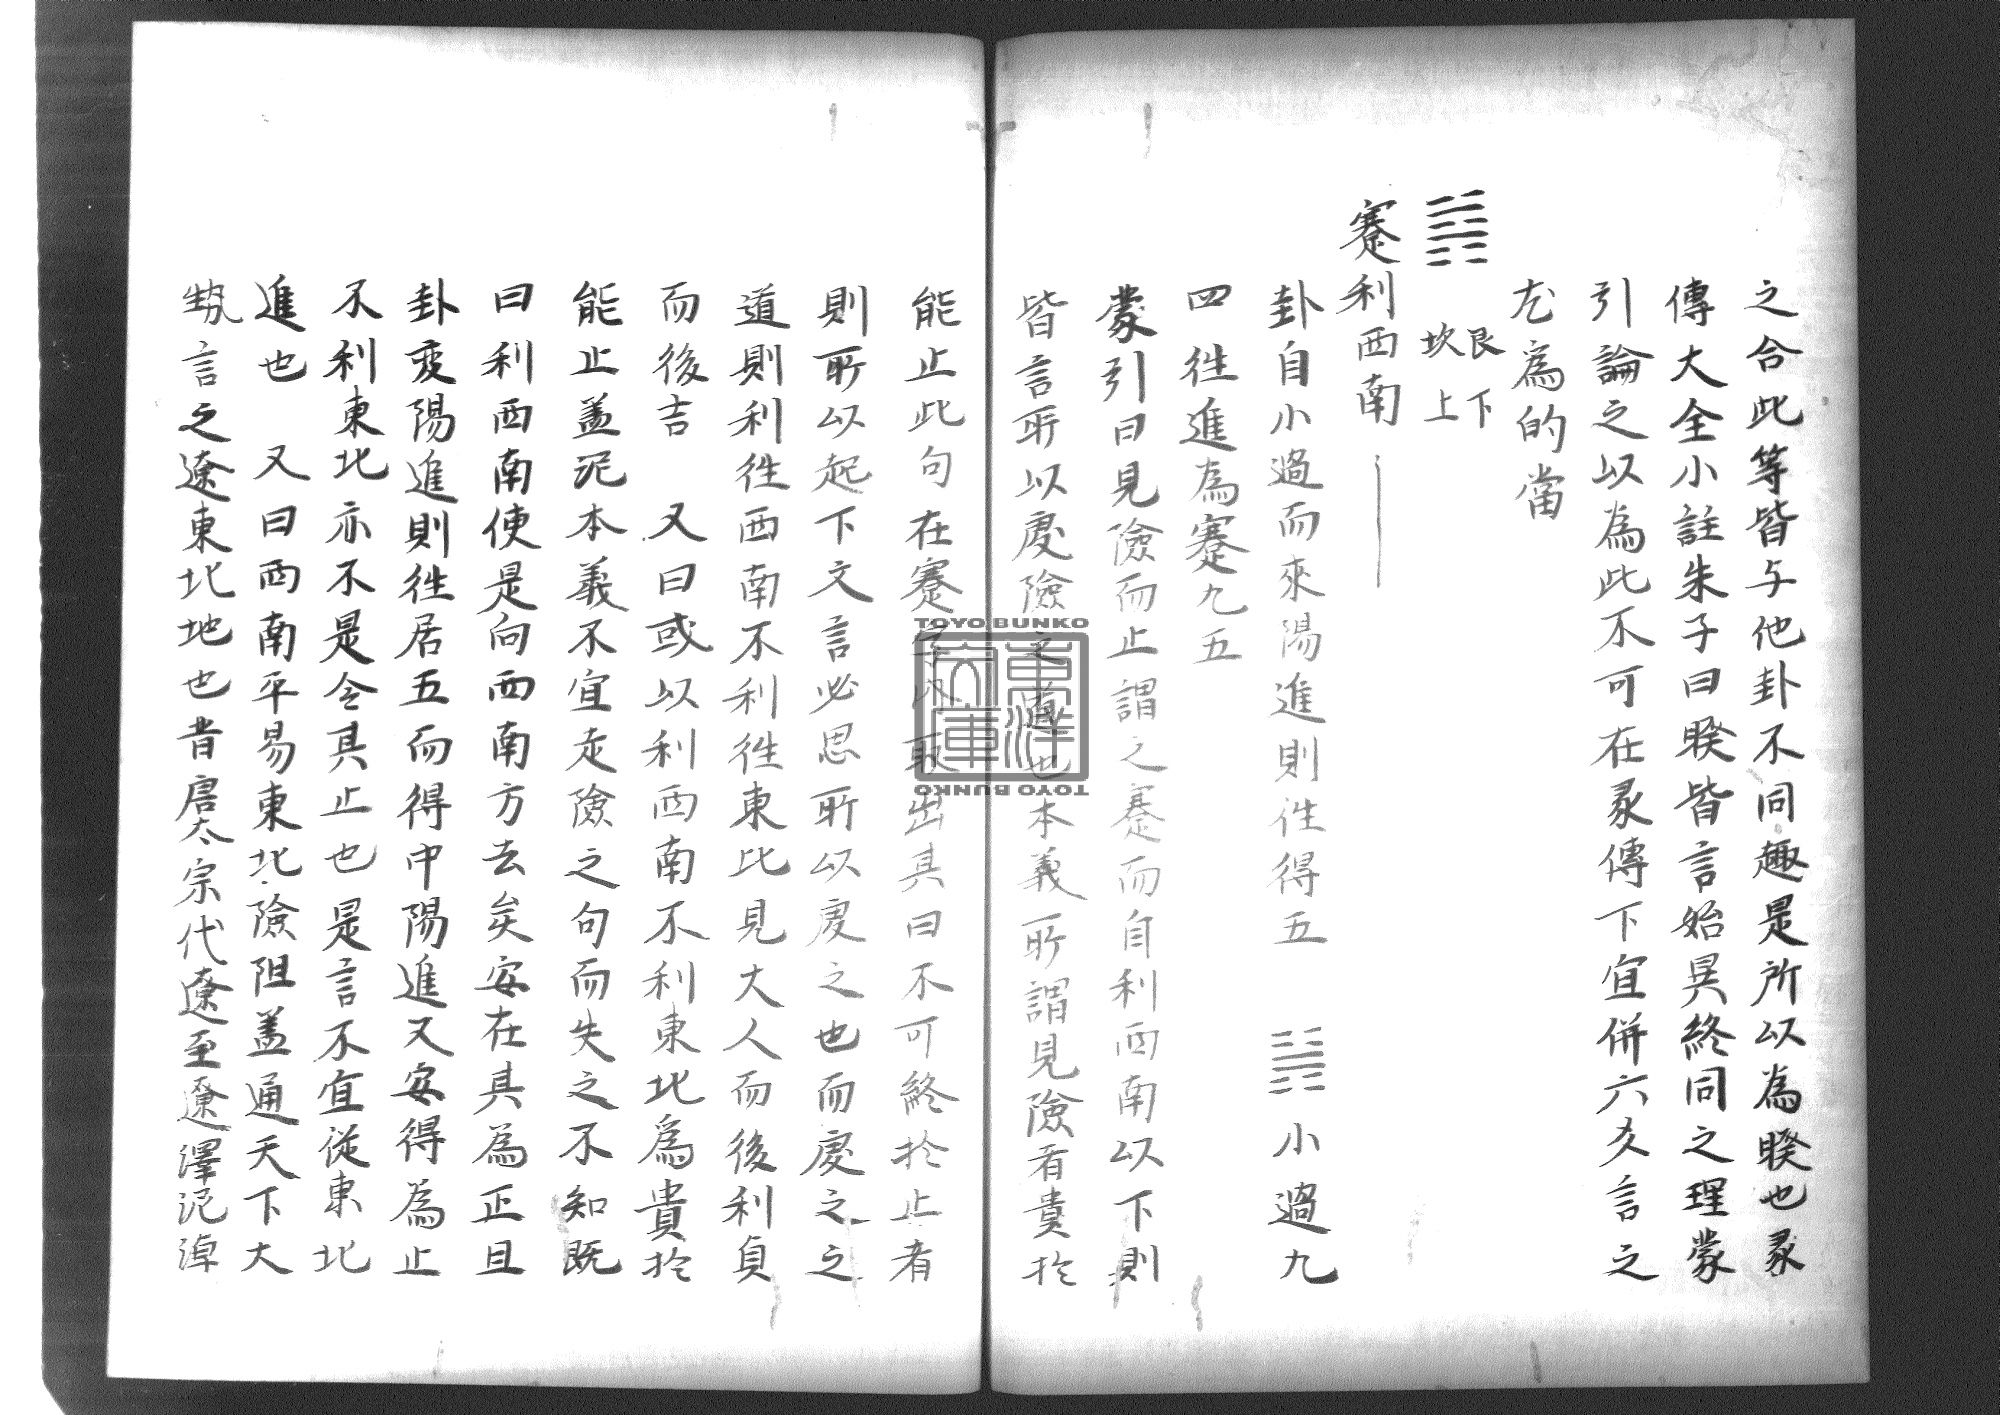 之合此等皆与他卦不同趣是所以為睽也彖
傳大全小註朱子曰睽皆言始異終同之理蒙
引論之以為此不可在彖傳下宜併六爻言之
尤為的當
䷦ 艮下
坎上
蹇利西南
卦自小過而來陽進則徃得五 ䷽ 小過九
四徃進為蹇九五
蒙引曰見險而止謂之蹇而自利西南以下則
皆言所以處險之道也本義所謂見險者貴於
能止此句在蹇字内取出其曰不可終於止者
則所以起下文言必思所以處之也而處之之
道則利徃西南不利徃東北見大人而後利貞
而後吉 又曰或以利西南不利東北為貴於
能止盖泥本義不宜走險之句而失之不知既
曰利西南使是向西南方去矣安在其為正且
卦変陽進則徃居五而得中陽進又安得為止
不利東北亦不是令其止也是言不宜従東北
進也 又曰西南平易東北險阻盖通天下大
𫝑言之遼東北地也昔唐太宗代遼至遼澤泥淖
TOYO BUNKO
東洋文庫
TOYO BUNKO